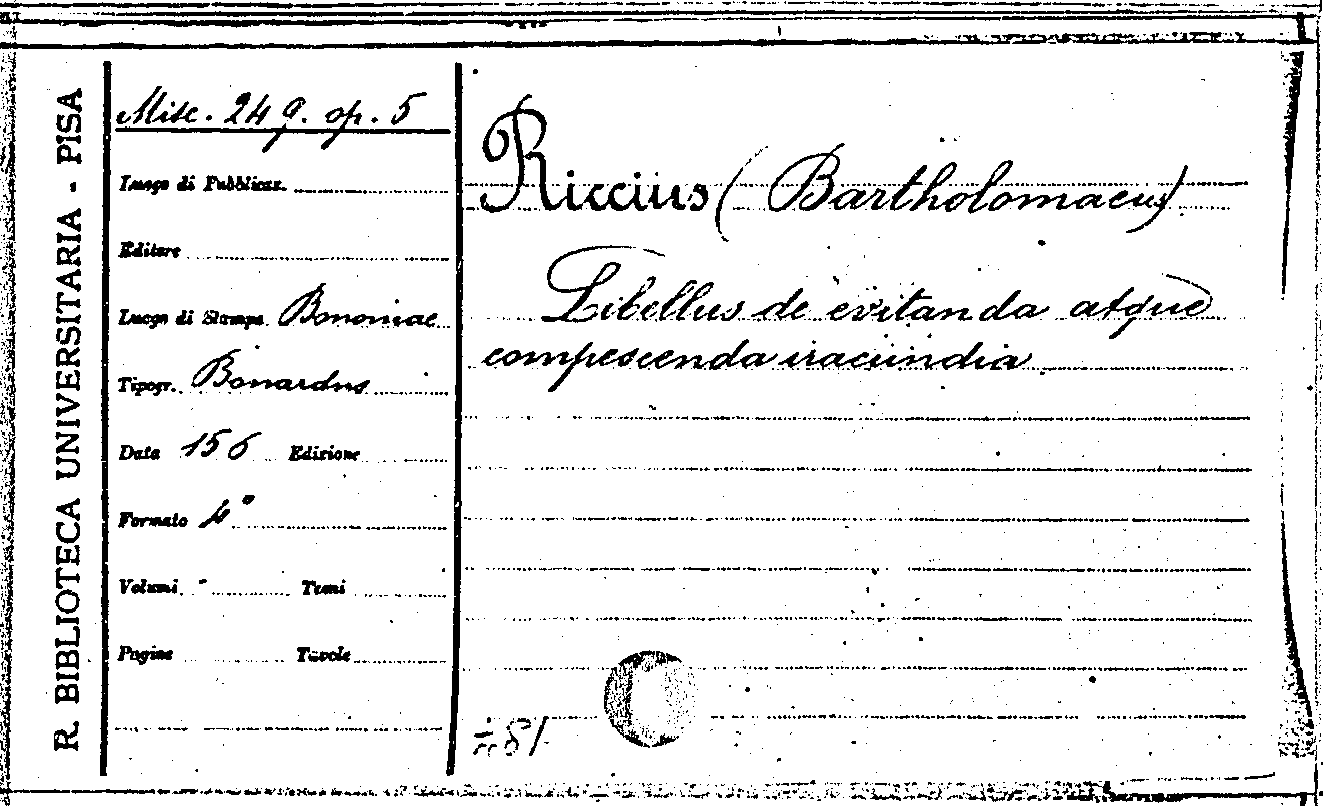 R. BIBLIOTECA UNIVERSITARIA - PISA
Misc. 249. op. 5
Luogo di Pubblicaz.
Editore
Luogo di Stampa Bononiae
Tipogr. Bonardus
Data 156 Edizione
Formato 4°
Volumi Tomi
Pagine Tavole
Riccius (Bartholomaeus)
Libellus de evitanda atque
compescenda iracundia